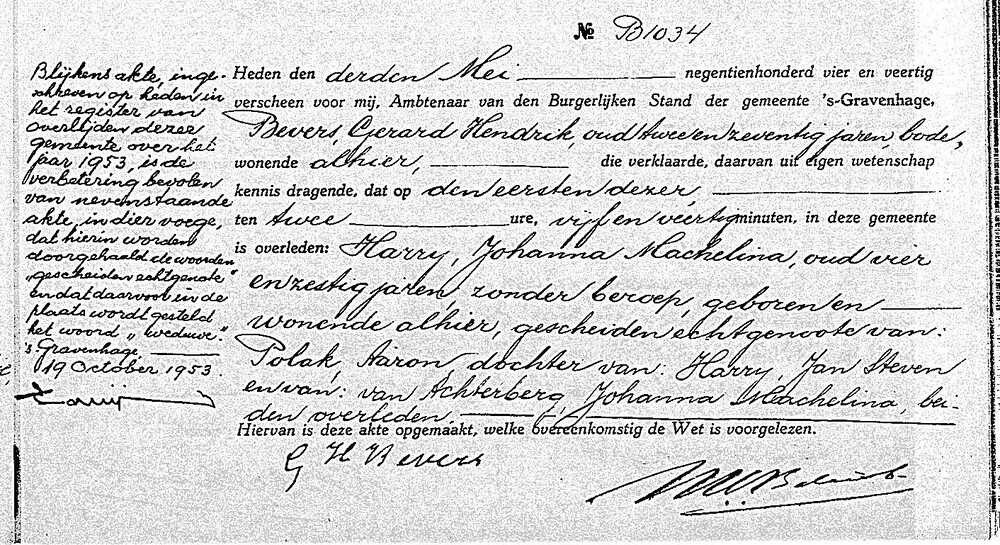 № B1034
Heden den derden Mei negentienhonderd vier en veertig
verscheen voor mij, Ambtenaar van den Burgerlijken Stand der gemeente 's-Gravenhage,
Bevers, Gerard Hendrik, oud twee en zeventig jaren, bode,
wonende alhier, die verklaarde, daarvan uit eigen wetenschap
kennis dragende, dat op den eersten dezer,
ten twee ure, vijf en veertig minuten, in deze gemeente
is overleden: Harry, Johanna Machelina, oud vier
en zestig jaren, zonder beroep, geboren en
wonende alhier, gescheiden echtgenoote van:
Polak, Aäron, dochter van: Harry, Jan Steven
en van: van Achterberg, Johanna Machelina, bei-
den overleden.
Hiervan is deze akte opgemaakt, welke overeenkomstig de Wet is voorgelezen.
G H Bevers
Blijkens akte, inge-
schreven op heden in
het register van
overlijden dezer
gemeente over het
jaar 1953, is de
verbetering bevolen
van nevenstaande
akte, in dier voege,
dat hierin worden
doorgehaald de woorden
„gescheiden echtgenote"
en dat daarvoor in de
plaats wordt gesteld
het woord „weduwe."
's-Gravenhage,
19 October 1953.